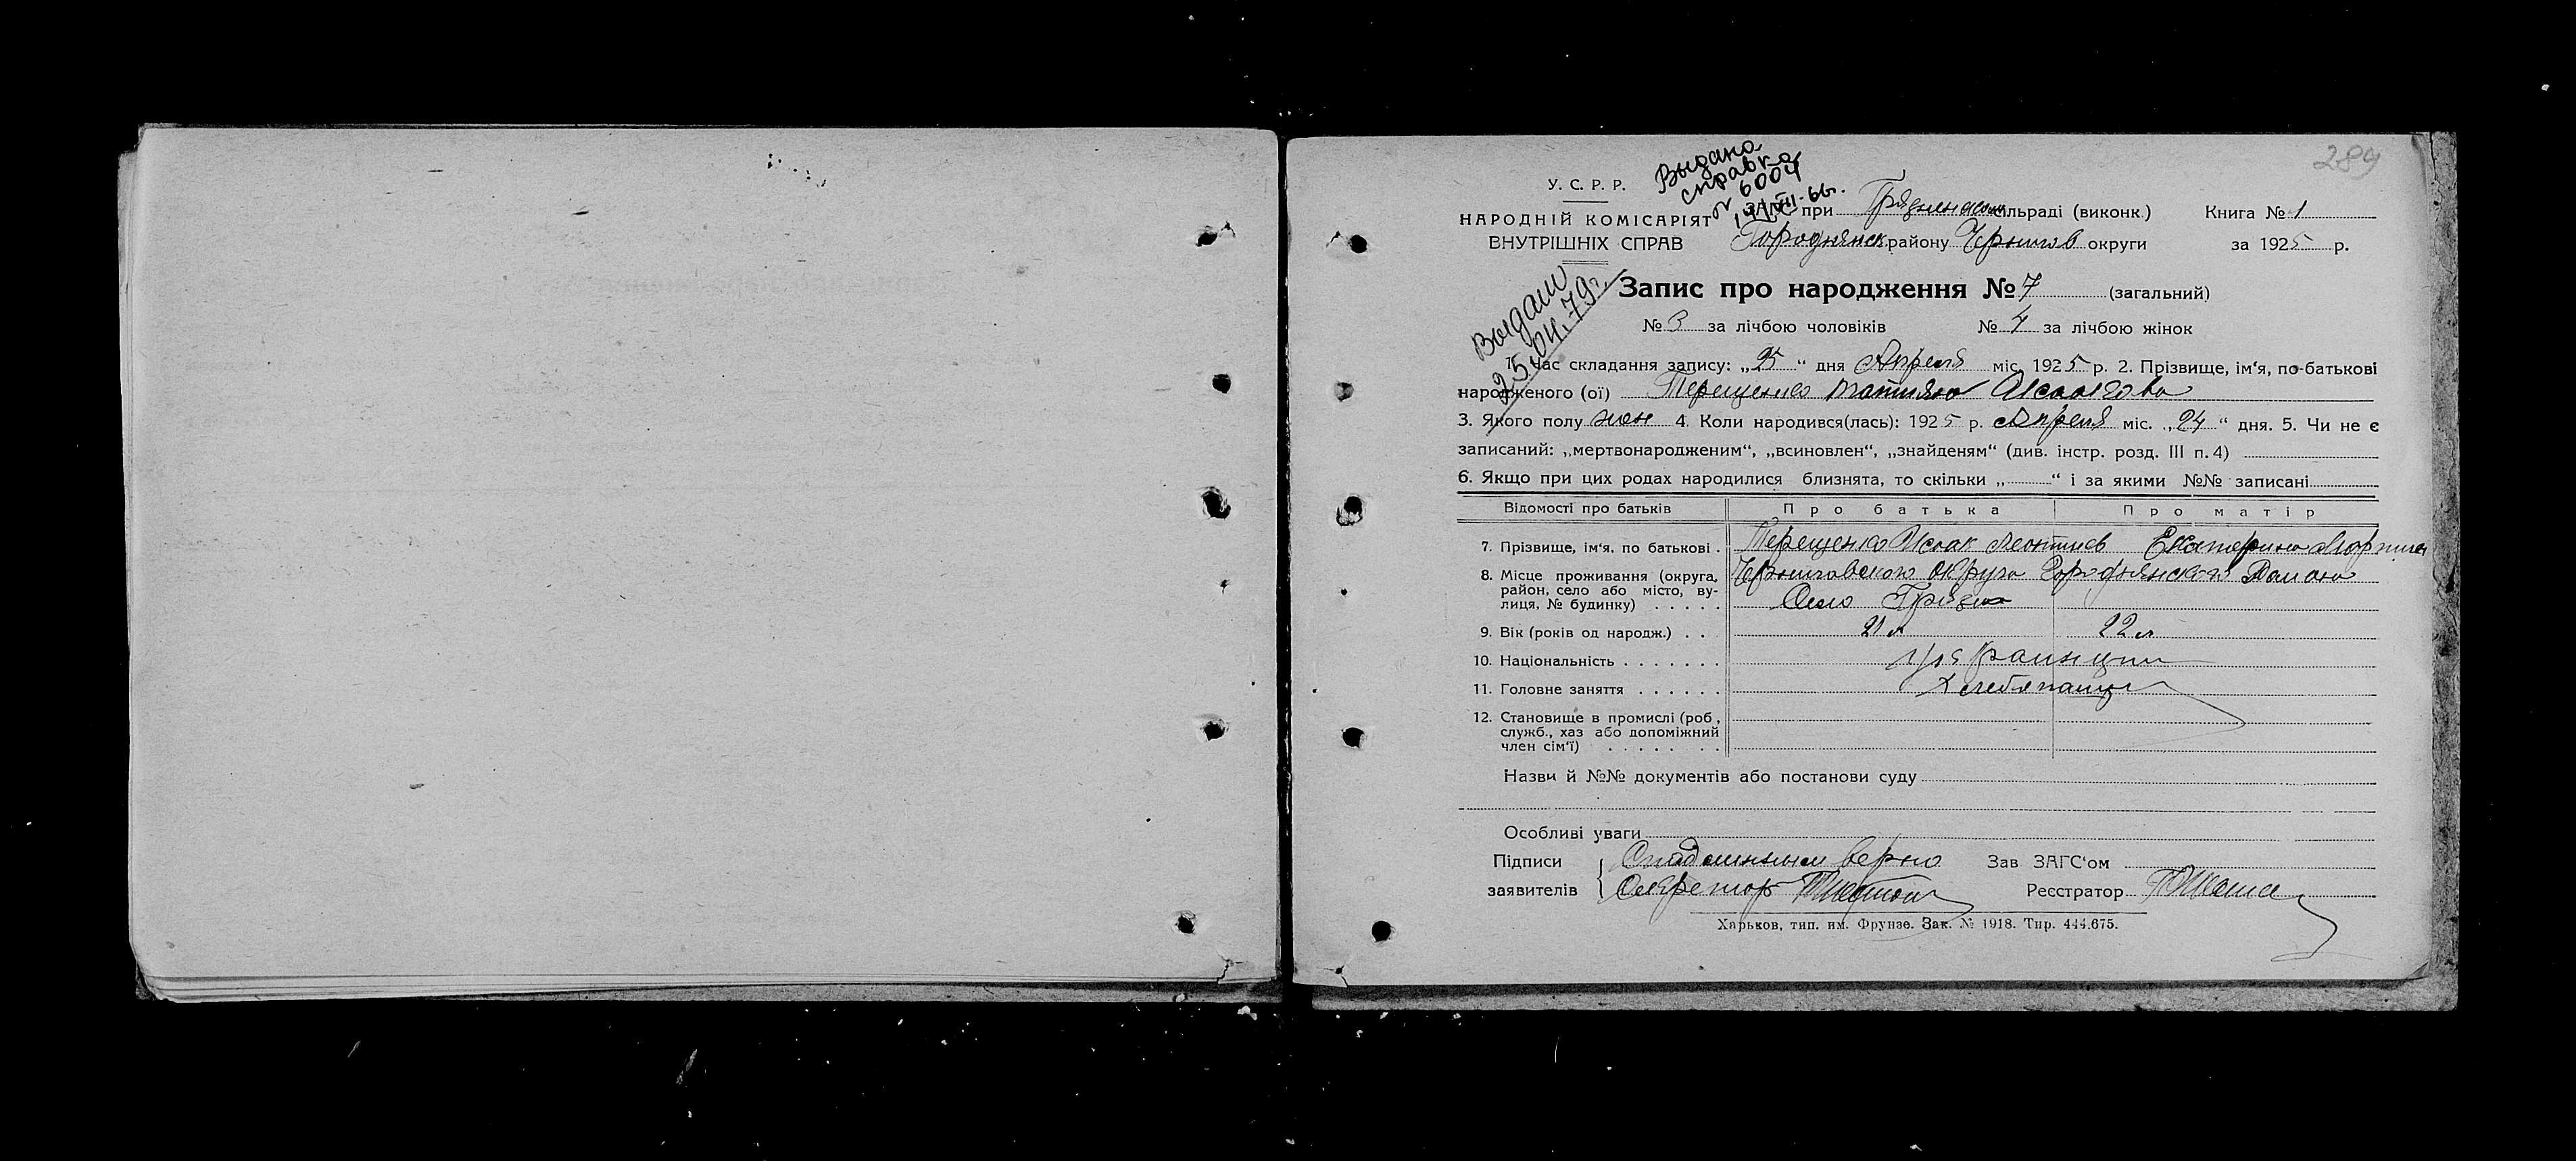 289
Выдана
справка
6004
У. С. Р. Р.
НАРОДНІЙ КОМІСАРІЯТ
ВНУТРІШНІХ СПРАВ
ЗАГС при Грязненском сільраді (виконк.) Книга № 1
Городнянск району Чернигов округи за 1925 р.
Выдано
25.04.79г.
Запис про народження № 7 (загальний)
№ 3 за лічбою чоловіків № 4 за лічбою жінок
1. Час складання запису: „25“ дня Апреля міс. 1925 р. 2. Прізвище, ім‘я, по-батькові
народженого (ої) Терещенко Татияна Исааковна
3. Якого полу жен 4. Коли народився(лась): 1925 р. Апреля міс. „24“ дня. 5. Чи не є
записаний: „мертвонародженим“, „всиновлен“, „знайденям“ (див. інстр. розд. III п. 4)
6. Якщо при цих родах народилися близнята, то скільки „ “ і за якими №№ записані
Відомості про батьків Про батька Про матір
7. Прізвище, ім‘я, по батькові . Терещенко Исаак Леонтиев Екатерина
8. Місце проживання (округа, район, село або місто, вулиця, № будинку) . . . . . Черниговской округа Городнянского Района
Село Грязна
9. Вік (років од народж.) . . 21 л 22 л
10. Національність . . . . . . . Украинцы
11. Головне заняття . . . . . . Хлебопашцы
12. Становище в промислі (роб., служб., хаз або допоміжний член сім‘ї) . . . . . . .
Назви й №№ документів або постанови суду
Особливі уваги
Підписи верно Зав ЗАГС‘ом
заявителів Секретар Реєстратор
Харьков, тип. им. Фрунзе. Зак. № 1918. Тир. 444.675.